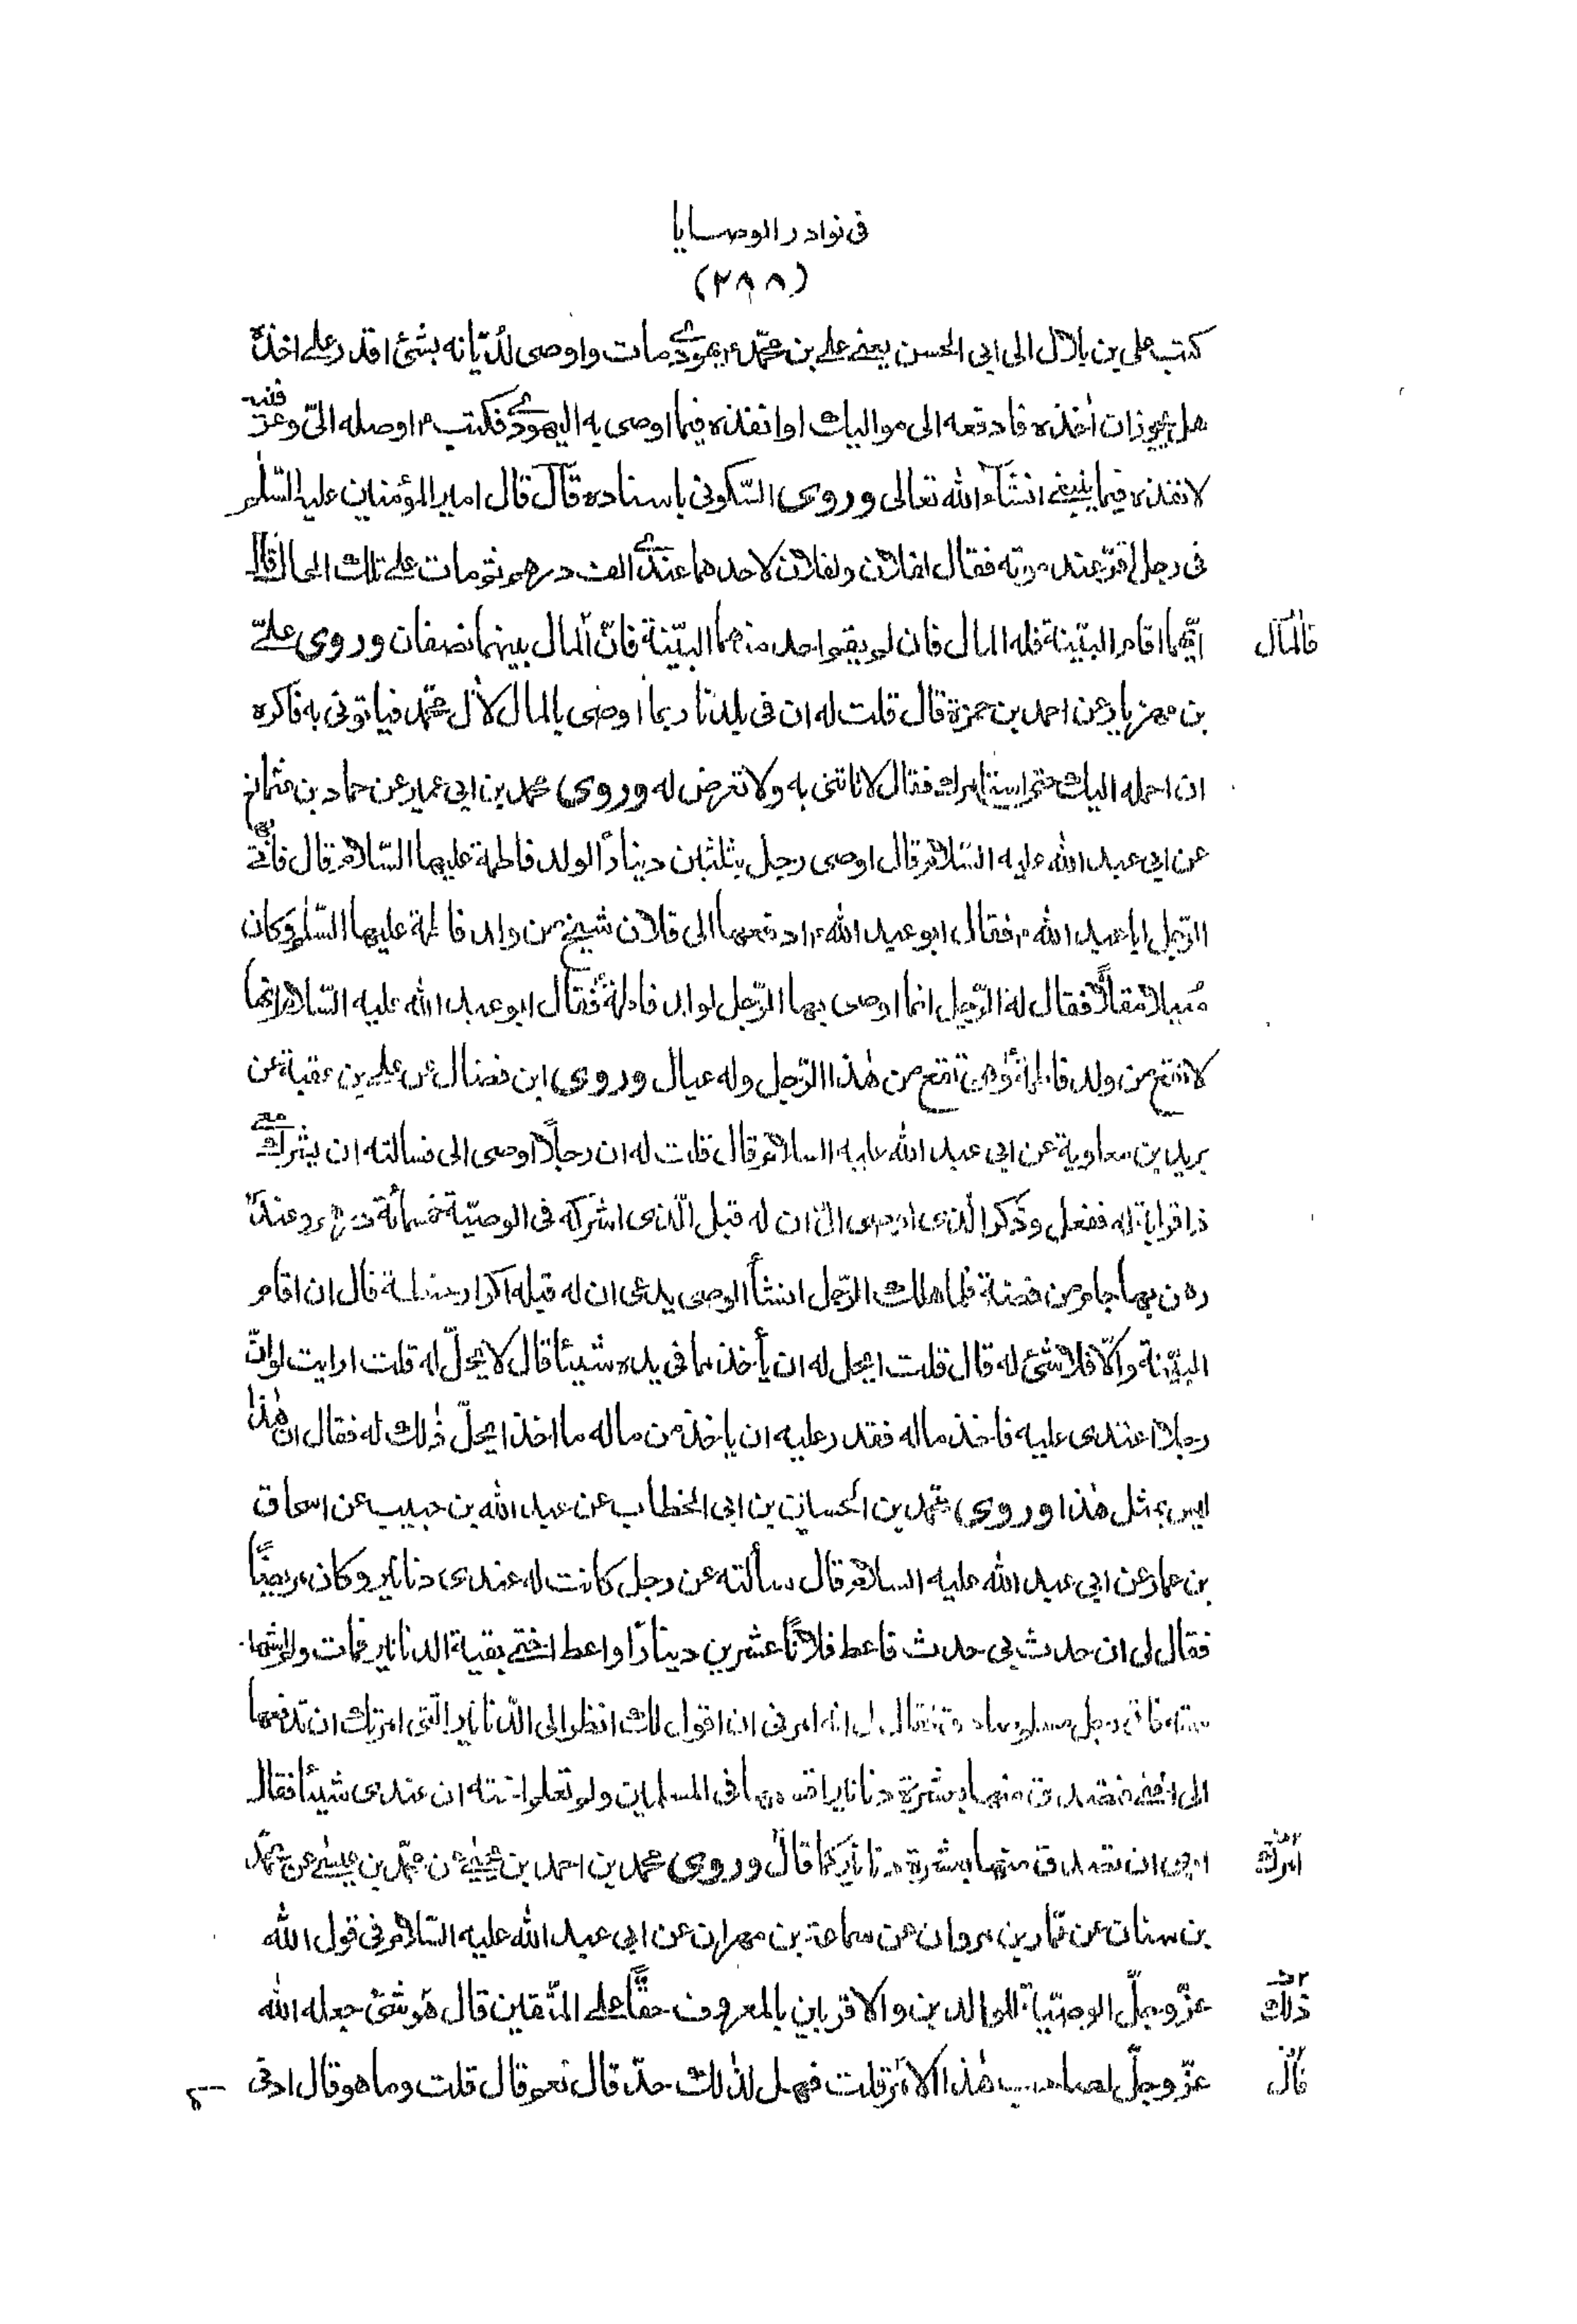 فى نوادر الوصايا
(۲۸۸)
كتب على بن بلال الى ابى الحسن يعنے علے بن محمّد ۴ يهودے مات و اوصى لديّانه بشئ اقدر علے اخذه
هل يجوز ان اخذه فادفعه الى مواليك او انفذه فيما اوصى به اليهودے فكتب ۴ اوصله الىّ وعرّفنيه
لانفذه فيما ينبغے انشآء الله تعالى وروى السّكونى باسناده قال قال امير المؤمنين عليه السّلٰم
فى رجل اقرّ عند موته فقال لفلان ولفلان لاحدهما عندے الف درهم ثم مات علے تلك الحال فقال
ايّهما اقام البيّنة فله المال فان لم يقم واحد منهما البيّنة فانّ المال بينهما نصفان وروى علےّ
فالمال
بن مهزيار عن احمد بن حمزة قال قلت له ان فى بلدنا ربما اوصى بالمال لآل محمّد فياتونى به فاكره
ان احمله اليك حتى استامرك فقال لا تاتنى به ولا تعرض له وروى محمد بن ابى عمير عن حماد بن عثمان
عن ابى عبد الله عليه السّلام قال اوصى رجل بثلثين دينارًا لولد فاطمة عليها السّلام قال فاتى بها
الرّجل ابا عبد الله ۴ فقال ابو عبد الله ۴ ادفعها الى فلان شيخ من ولد فاطمة عليها السّلٰم وكان
مُعيلا مقلاًّ فقال له الرّجل انما اوصى بها الرّجل لولد فاطمة ۴ فقال ابو عبد الله عليه السّلام انها
لا تقع من ولد فاطمة ۴ وهى تقع من هٰذا الرّجل وله عيال وروى ابن فضال عن علے بن عقبة عن
بريد بن معاوية عن ابى عبد الله عليه السلام قال قلت له ان رجلاً اوصى الى فسالته ان يشرك معے
ذا قرابة له ففعل وذكر الّذى اوصى الىّ ان له قبل الّذى اشركه فى الوصيّة خمسمائة درهم وعنده
رهن بها جام من فضة فلما هلك الرّجل انشأ الوصى يدعى ان له قبله اكرار حنطة قال ان اقام
البيّنة والّا فلا شئ له قال قلت ايحل له ان يأخذ مما فى يده شيئا قال لا يحلّ له قلت ارايت لو انّ
رجلا اعتدى عليه فاخذ ماله فقدر عليه ان ياخذ من ماله ما اخذ ايحلّ ذٰلك له فقال انّ هٰذا
ليس بمثل هٰذا وروى محمّد بن الحسين بن ابى الخطاب عن عبد الله بن حبيب عن اسحاق
بن عمار عن ابى عبد الله عليه السلام قال سألته عن رجل كانت له عندى دنانير وكان مريضًا
فقال لى ان حدث بى حدث فاعط فلانًا عشرين دينارًا واعط اختے بقية الدنانير فمات ولم اشهد
موته فاتى رجل مسلم صادق فقال لى انه امرنى ان اقول لك انظر الى الدّنانير التى امرتك ان تدفعها
الى اختے فتصدق منها بعشرة دنانير اقسمها فى المسلمين ولم تعلم اخته ان عندى شيئا فقال
ارى ان تصدق منها بعشرة دنانير كما قال وروى محمد بن احمد بن يحيٰے عن محمّد بن عيسٰے عن محمّد
امرك
بن سنان عن عمار بن مروان عن سماعة بن مهران عن ابى عبد الله عليه السّلام فى قول الله
عزّ وجلّ الوصيّة للوالدين والاقربين بالمعروف حقًّا علے المتّقين قال هو شئ جعله الله
ذٰلك
عزّ وجلّ لصاحب هٰذا الامر قلت فهل لذٰلك حدّ قال نعم قال قلت وما هو قال ادنى
قال